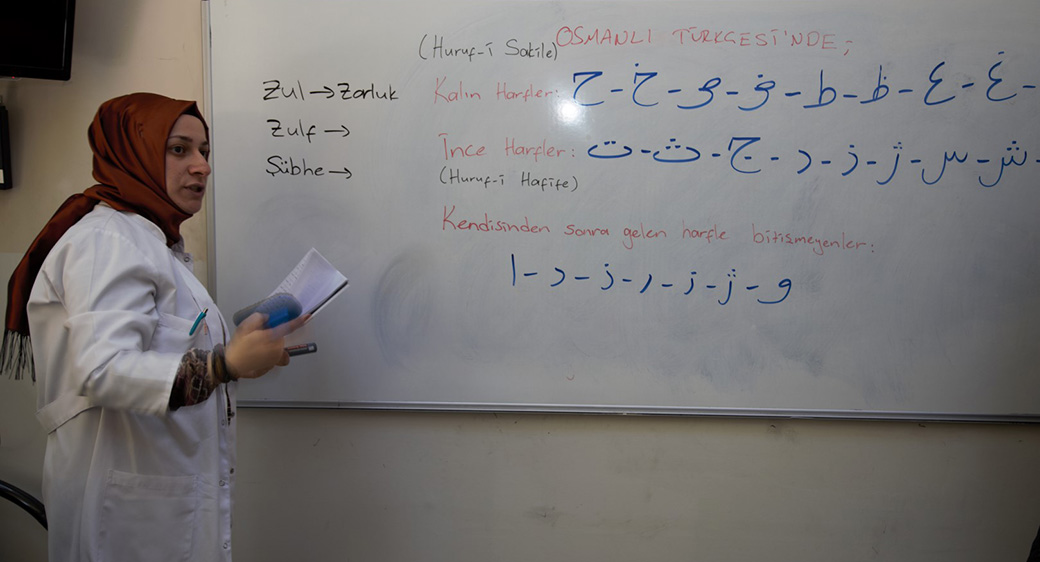 (Huruf-î Sakile) OSMANLI TÜRKÇESİ'NDE;
Zul → Zorluk
Kalın Harfler: ح - خ - ص - ض - ط - ظ - ع - غ -
Zulf →
İnce Harfler: ت - ث - ج - د - ز - ژ - س - ش -
Şübhe →
(Huruf-î Hafife)
Kendisinden sonra gelen harfle bitişmeyenler:
ا - د - ذ - ر - ز - ژ - و